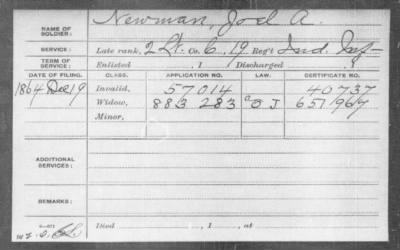 NAME OF SOLDIER: Newman, Joel A.
SERVICE: Late rank, 2 Lt. Co. G, 19 Reg't Ind. Inf
TERM OF SERVICE: Enlisted , 1 Discharged , 1
DATE OF FILING. CLASS. APPLICATION NO. LAW. CERTIFICATE NO.
1864 Dec 19 Invalid, 57014 40737
Widow, 883 283 O J 657967
Minor,
ADDITIONAL SERVICES:
REMARKS:
6-071 Died , 1 , at